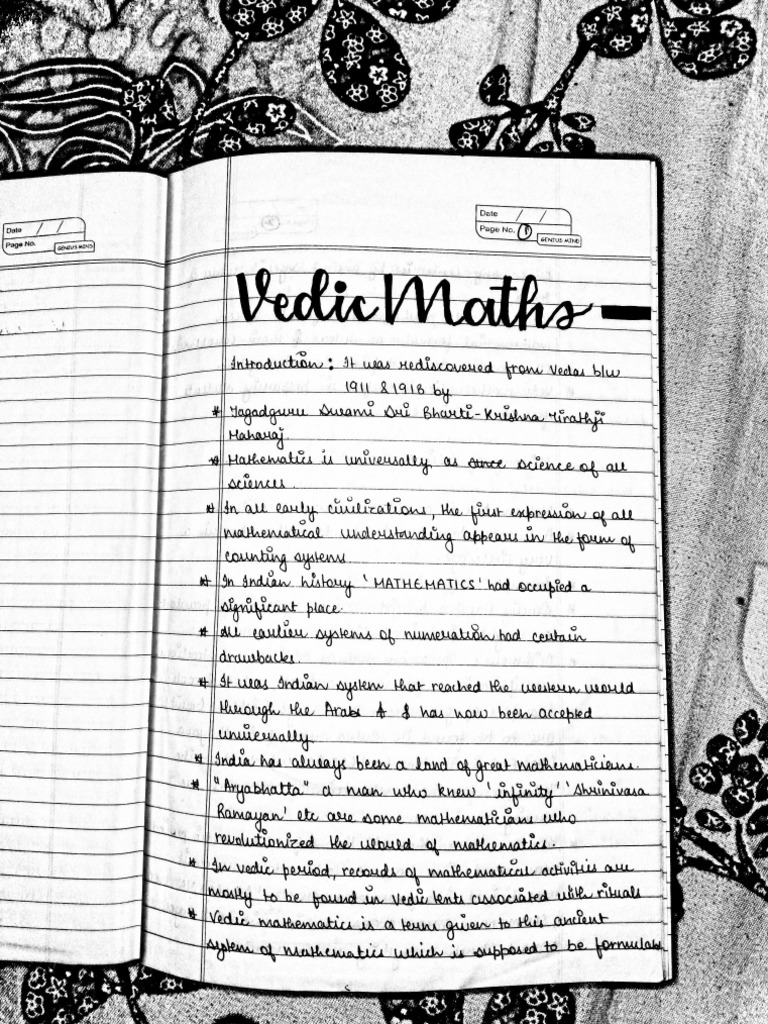 Date / /
Page No.
GENIUS MIND
Date / /
Page No. 1
GENIUS MIND
Vedic Maths
Introduction: It was rediscovered from Vedas b/w
1911 & 1918 by
* Jagadguru Swami Sri Bharti-Krishna Tirathji
Maharaj
* Mathematics is universally as since science of all
sciences.
* In all early civilizations, the first expression of all
mathematical understanding appears in the form of
counting systems
* In Indian history 'MATHEMATICS' had occupied a
significant place.
* All earlier systems of numeration had certain
drawbacks.
* It was Indian system that reached the western world
through the Arabs & has now been accepted
universally.
* India has always been a land of great mathematicians.
* "Aryabhatta" a man who knew 'infinity' 'Shrinivasa
Ramayan' etc are some mathematicians who
revolutionized the would of mathematics.
* In vedic period, records of mathematical activities are
mostly to be found in vedic texts associated with rituals
* Vedic mathematics is a term given to this ancient
system of mathematics which is supposed to be formulated